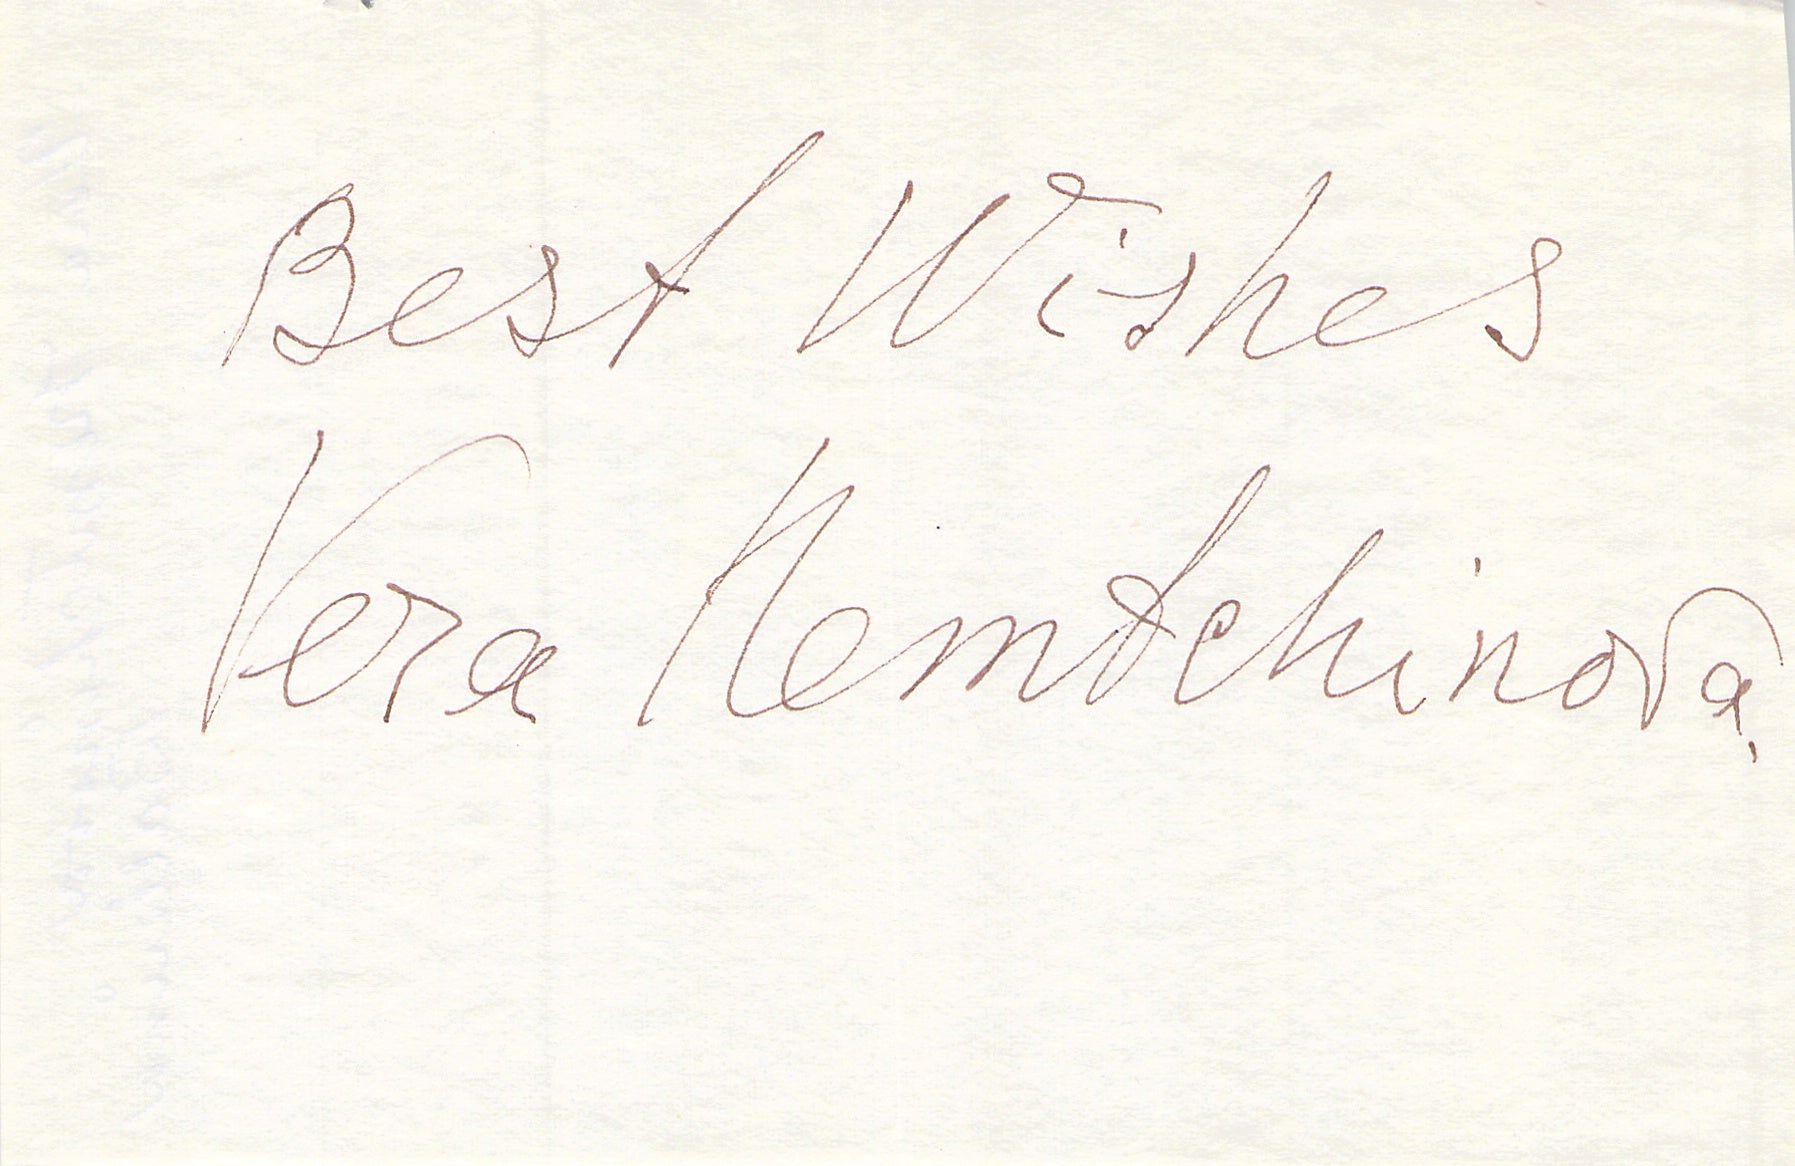 Best Wishes
Vera Nemtchinova.